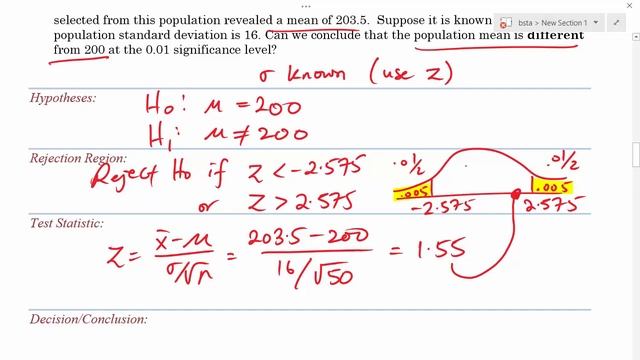 selected from this population revealed a mean of 203.5.  Suppose it is known
bsta > New Section 1
population standard deviation is 16. Can we conclude that the population mean is different
from 200 at the 0.01 significance level?
σ known (use z)
Hypotheses:
H₀: μ = 200
H₁: μ ≠ 200
Rejection Region:
Reject H₀ if z < -2.575
or z > 2.575
.01/2 .01/2
.005 .005
-2.575 2.575
Test Statistic:
z = (x̄ - μ)/(σ/√n) = (203.5 - 200)/(16/√50) = 1.55
Decision/Conclusion: